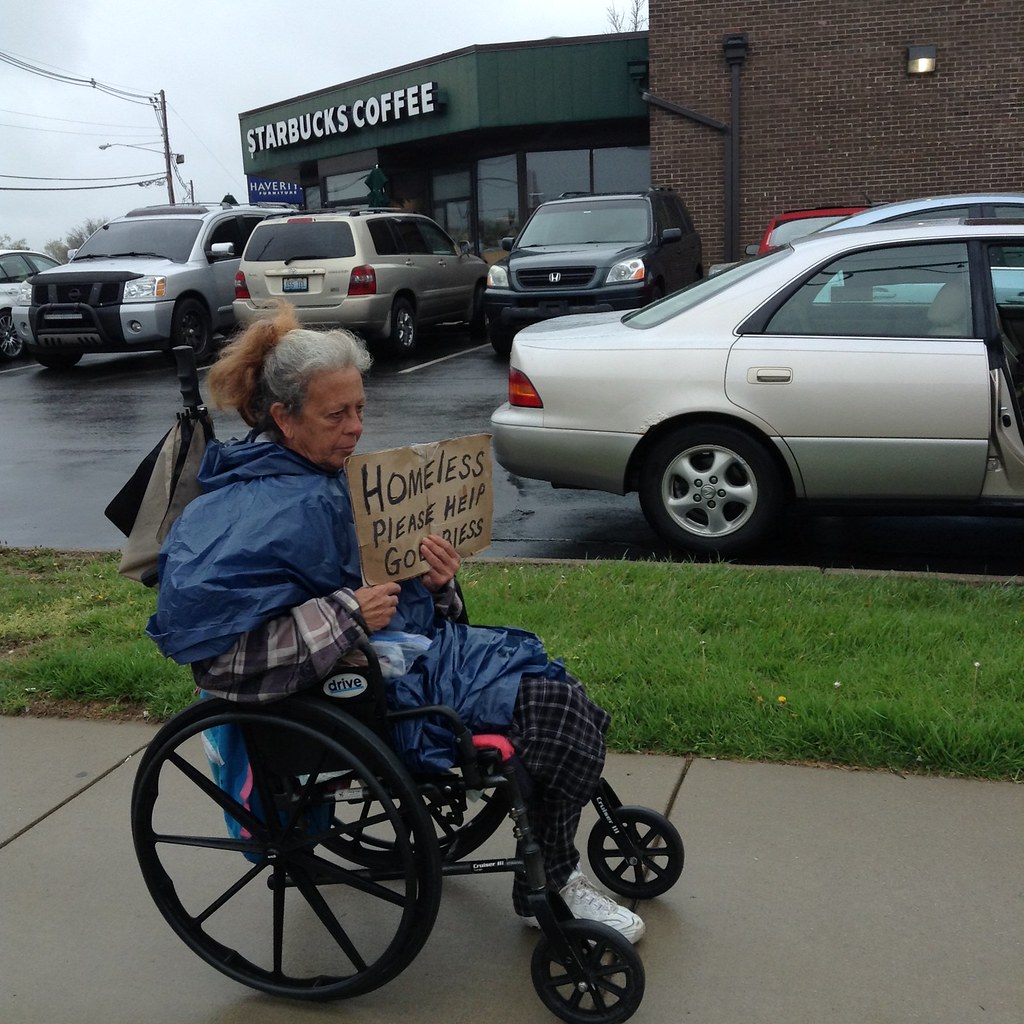 STARBUCKS COFFEE
HAVERTY
FURNITURE
HOMElESS
PlEASE HElP
GOD BlESS
drive
Cruiser III
Cruiser III